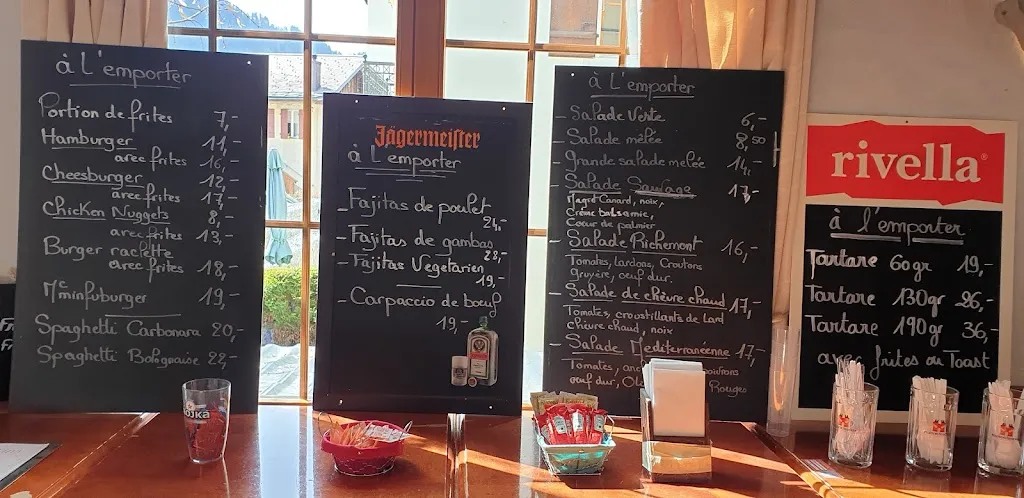 à L'emporter
Portion de frites 7,-
Hamburger 11,-
avec frites 16,-
Cheesburger 12,-
avec frites 17,-
Chicken Nuggets 8,-
avec frites 13,-
Burger raclette
avec frites 18,-
Mc minfuburger 19,-
Spaghetti Carbonara 20,-
Spaghetti Bolognaise 22,-
Jägermeister
à L'emporter
- Fajitas de poulet
24,-
- Fajitas de gambas
28,-
- Fajitas Vegetarien
19,-
- Carpaccio de boeuf
19,-
à L'emporter
- Salade Verte 6,-
- Salade mêlée 8,50
- grande salade melée 14,-
- Salade Sauvage 17,-
Magret Canard, noix,
Crème balsamic,
Coeur de palmier
- Salade Richemont 16,-
Tomates, lardons, Croutons
gruyère, oeuf dur.
- Salade de chèvre chaud 17,-
Tomates, croustillants de Lard
chèvre chaud, noix
- Salade Mediterranéenne 17,-
Tomates,
oeuf dur, Rouges
rivella
à l'emporter
Tartare 60gr 19,-
Tartare 130gr 26,-
Tartare 190gr 36,-
avec frites ou Toast